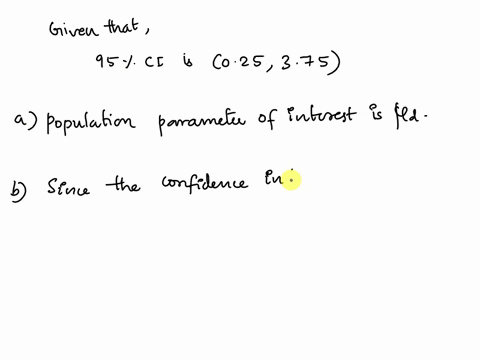 Given that,
95% CI is (0.25, 3.75)
a) population parameter of interest is μd.
b) Since the confidence in